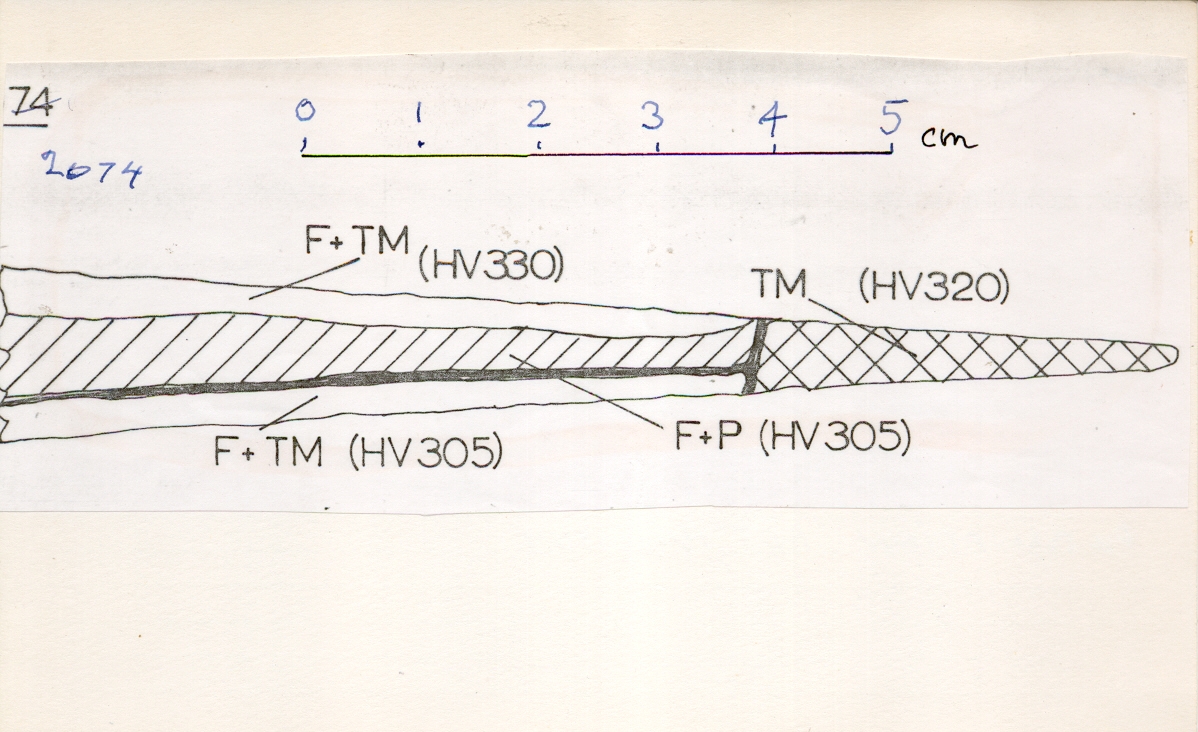 74
0 1 2 3 4 5 cm
2074
F+TM (HV330)
TM (HV320)
F+TM (HV305)
F+P (HV305)